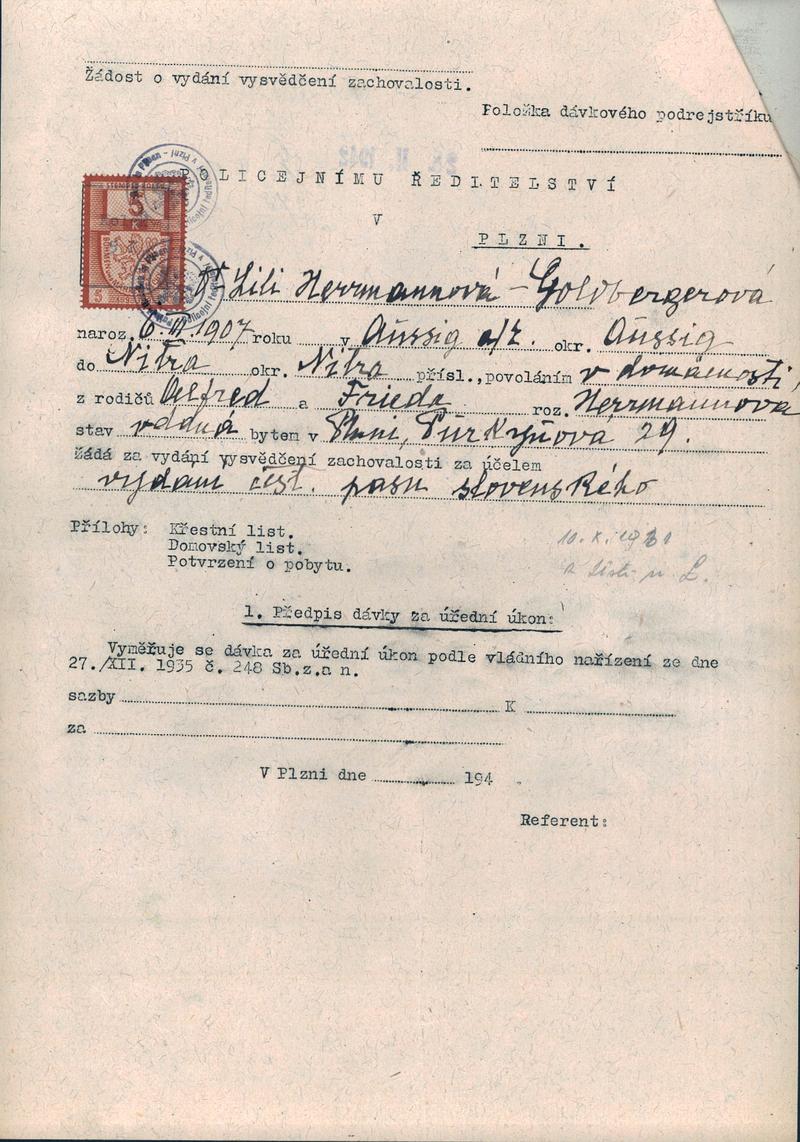 Žádost o vydání vysvědčení zachovalosti.
Položka dávkového podrejstříku
POLICEJNÍMU ŘEDITELSTVÍ
V
PLZNI.
5
K
Dr Lili Herrmannová - Goldbergerová
naroz. 6. 1907 roku v Aussig a/E. okr. Aussig
do Nitra okr. Nitra přísl., povoláním v domácnosti,
z rodičů Alfred a Frieda roz. Herrmannova
stav vdaná bytem v Plzni, Purkyňova 29.
Žádá za vydání vysvědčení zachovalosti za účelem
vydání cest. pasu slovenského
Přílohy: Křestní list.
Domovský list.
Potvrzení o pobytu.
10. X.
1. Předpis dávky za úřední úkon:
Vyměřuje se dávka za úřední úkon podle vládního nařízení ze dne
27./XII. 1935 č. 248 Sb.z.a n.
sazby K
za
V Plzni dne 194 .
Referent: